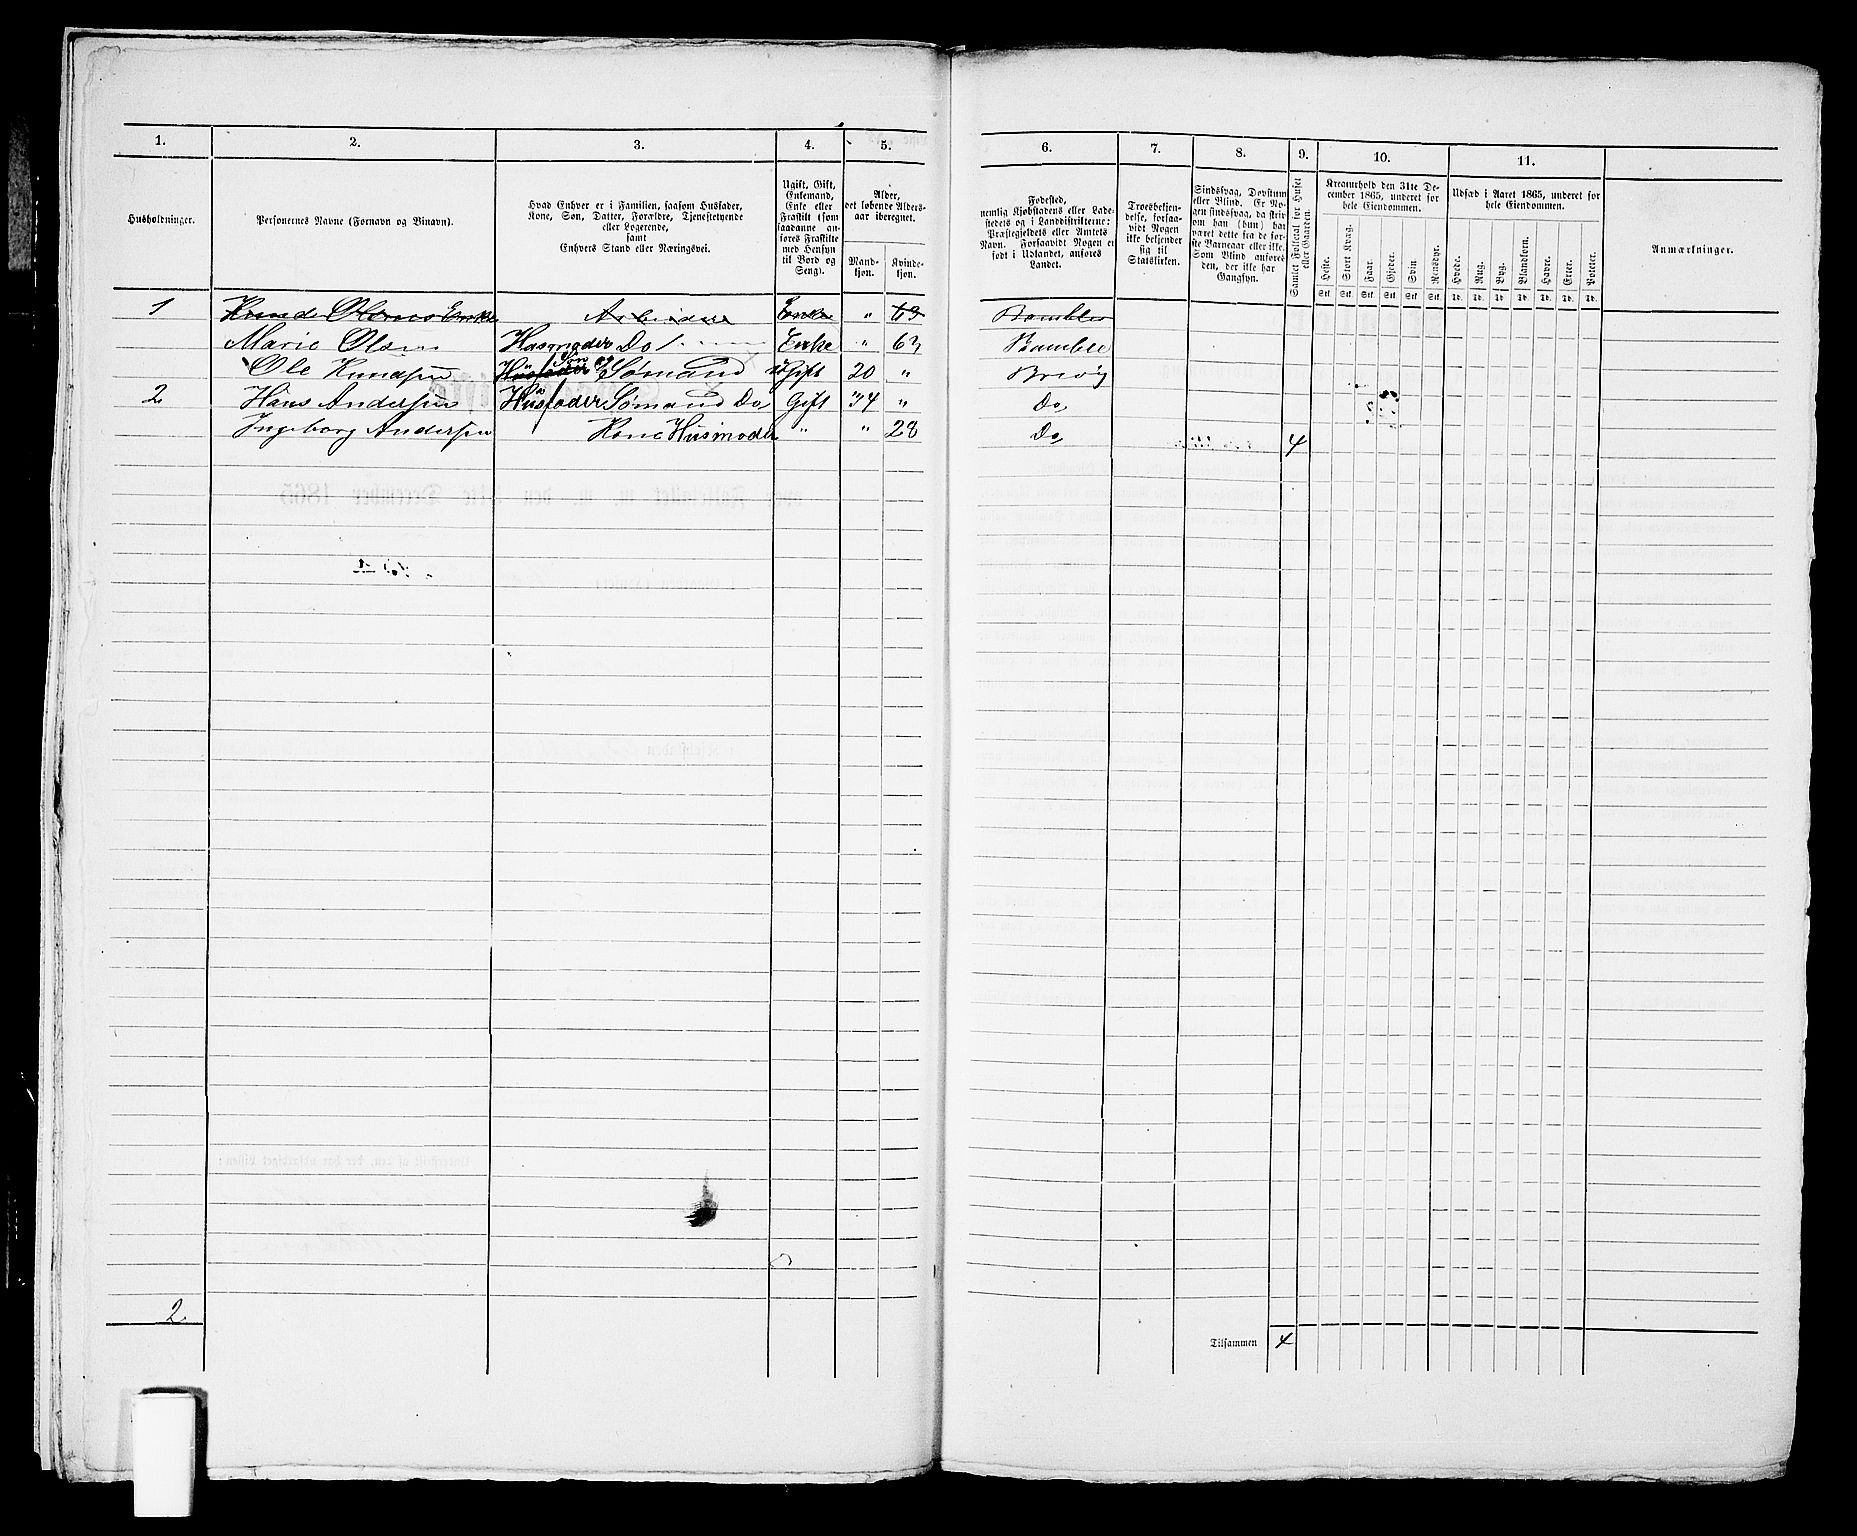 1. 2. 3. 4. 5. 6. 7. 8. 9. 10. 11.
Husholdninger.
Personernes Navne (Fornavn og Binavn).
Hvad Enhver er i Familien, saasom Husfader,
Kone, Søn, Datter, Forældre, Tjenestetyende
eller Logerende,
samt
Enhvers Stand eller Næringsvei.
Ugift, Gift,
Enkemand,
Enke eller
Fraskilt (som
saadanne an-
føres Fraskilte
med Hensyn
til Bord og
Seng).
Alder,
det løbende Alders-
aar iberegnet.
Mand-
kjøn.
Kvinde-
kjøn.
Fødested,
nemlig Kjøbstadens eller Lade-
stedets og i Landdistrikterne:
Præstegjeldets eller Amtets
Navn. Forsaavidt Nogen er
født i Udlandet, anføres
Landet.
Troesbekjen-
delse, forsaa-
vidt Nogen
ikke bekjender
sig til
Statskirken.
Sindssvag, Døvstum
eller Blind. Er No-
gen sindssvag, da skriv
om han (hun) har
været dette fra de før-
ste Barneaar eller ikke.
Som Blind anføres
den, der ikke har
Gangsyn.
Samlet Folketal for Huset
eller Gaarden.
Kreaturhold den 31te De-
cember 1865, underet for
hele Eiendommen.
Heste. Stort Kvæg. Faar. Gjeder. Svin Rensdyr.
Stk. Stk. Stk. Stk. Stk. Stk.
Udsæd i Aaret 1865, underet for
hele Eiendommen.
Hvede. Rug. Byg. Blandkorn. Havre. Erter. Poteter.
Td. Td. Td. Td. Td. Td. Td.
Anmærkninger.
1 Knud Olsens Enke Arbeidere Enke " 63 Bamble
Marie Olsen Husmoder Do Enke " 63 Bamble
Ole Knudsen Husfader Søn og Sømand Ugift 20 " Brevig
2 Hans Andersen Husfader Sømand Do Gift 34 " Do
Ingeborg Andersen Kone Husmoder " " 28 Do 4
2
Tilsammen 4